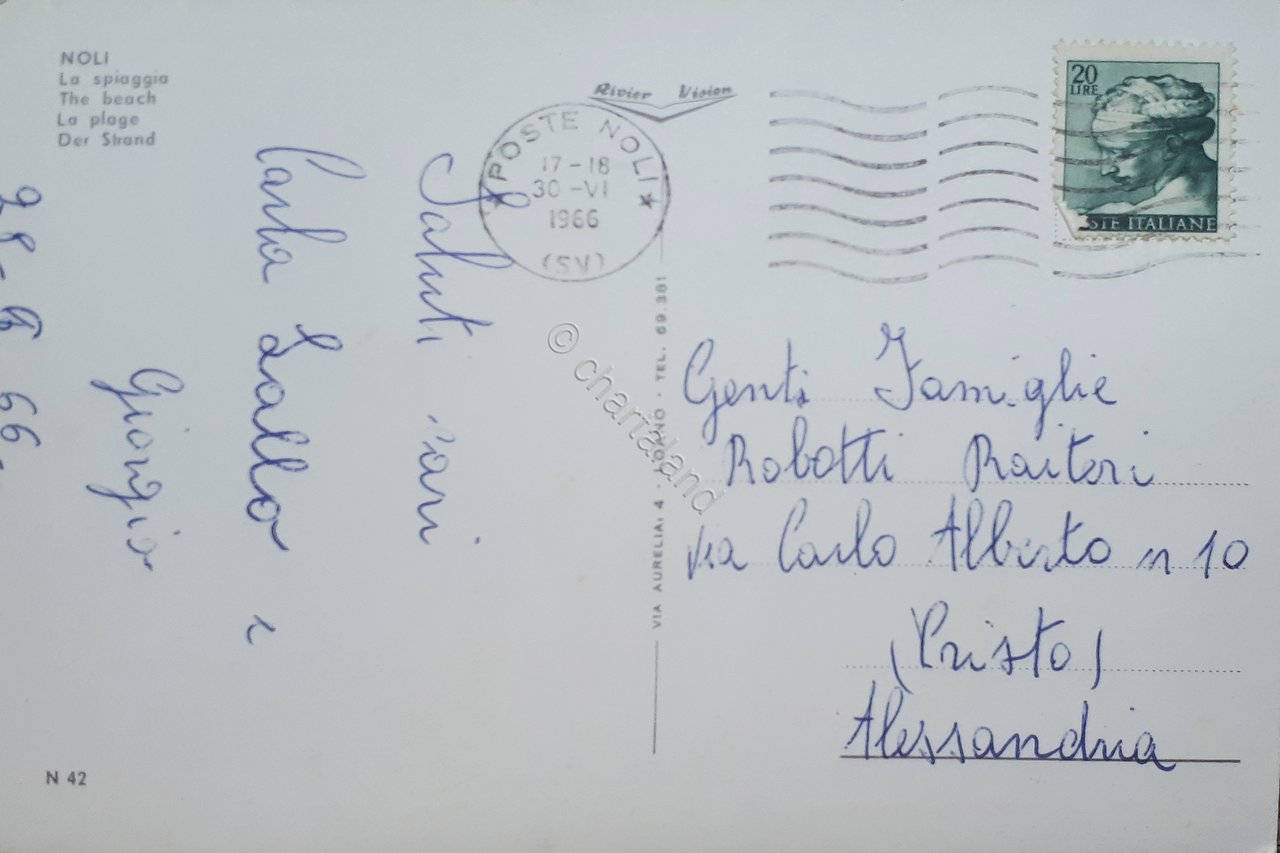 NOLI
La spiaggia
The beach
La plage
Der Strand
Rivier Vision
POSTE NOLI
17-18
30-VI
1966
(SV)
20
LIRE
STE ITALIANE
Saluti cari
Carla Lallo e
Giorgio
28-6 66.
Genti Famiglie
Robotti Raiteri
Via Carlo Alberto n 10
(Cristo)
Alessandria
VIA AURELIA, 4 TEL. 69.381
© chartaland
N 42